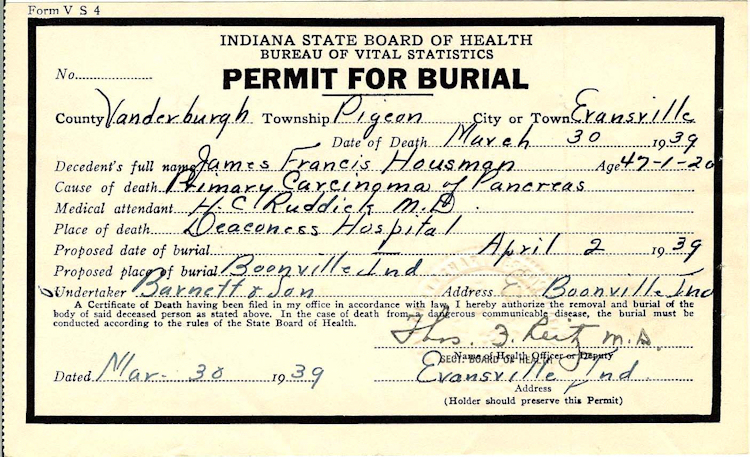 Form V S 4
INDIANA STATE BOARD OF HEALTH
BUREAU OF VITAL STATISTICS
No.
PERMIT FOR BURIAL
County Vanderburgh Township Pigeon City or Town Evansville
Date of Death March 30 1939
Decedent's full name James Francis Housman Age 47-1-20
Cause of death Primary Carcinoma of Pancreas
Medical attendant H. C. Ruddick M.D.
Place of death Deaconess Hospital
Proposed date of burial April 2 1939
Proposed place of burial Boonville Ind
Undertaker Barnett & Son Address Boonville Ind
A Certificate of Death having been filed in my office in accordance with law, I hereby authorize the removal and burial of the
body of said deceased person as stated above. In the case of death from a dangerous communicable disease, the burial must be
conducted according to the rules of the State Board of Health.
Thos. F. Reitz M.D.
Name of Health Officer or Deputy
SECT. BOARD OF HEALTH
Dated Mar - 30 1939
Evansville Ind.
Address
(Holder should preserve this Permit)